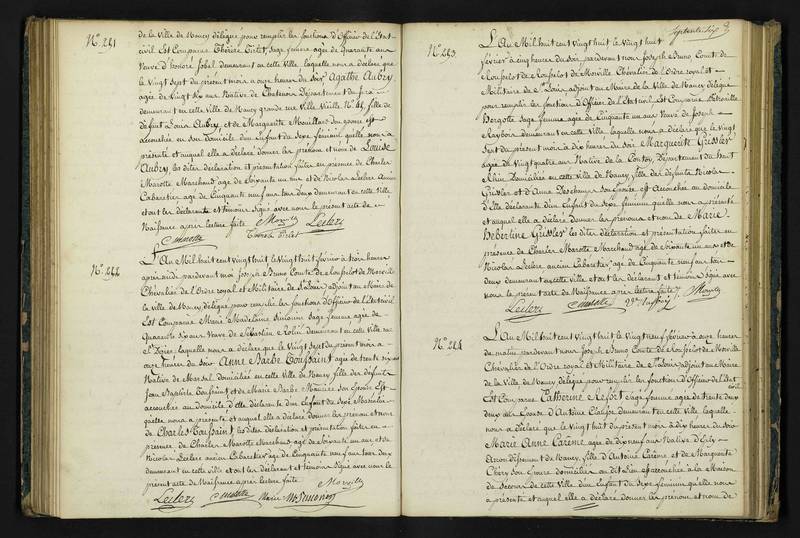 N.° 221
de la Ville de Nancy délégué pour remplir les fonctions d'Officier de l'État
civil Est Comparue Thérèse Tislet, Sage femme agée de quarante ans
Veuve d'honoré Jobel demeurant en cette Ville, laquelle nous a déclaré que
le Vingt Sept du présent mois a onze heures du soir Agathe Aubry
agée de Vingt Six ans Native de Chatenois Département des
demeurant en cette Ville de Nancy grande rue Ville Vieille N.° 61, fille de
défunt Louis Aubry, et de Marguerite Mouillard son épouse est
accouchée en Son Domicile d'un Enfant du Sexe féminin quelle nous a
présenté et auquel elle a déclaré donner les prénom et nom de Louise
Aubry, les dites déclaration et présentation faites en présence de Charles
Marotte Marchand agé de Soixante un ans et de Nicolas Leclerc Ancien
Cabaretier agé de Cinquante neuf ans tous deux demeurant en cette Ville
et ont les déclarante et témoins Signé avec nous le présent acte de
Naissance après lecture faite
Leclerc
Marotte
N.° 222
L'An Mil huit cent Vingt huit le Vingt huit février à trois heures
après midi pardevant moi Joseph Bruno Comte de Landrelot de Morville
Chevalier de l'Ordre royal et Militaire de St Louis adjoint au Maire de
la Ville de Nancy délégué pour remplir les fonctions d'Officier de l'État civil
Est Comparue Marie Madelaine Simonin Sage femme agée de
Quarante Six ans Veuve de Sébastien Robin demeurant en cette Ville rue
St Dizier, laquelle nous a déclaré que le Vingt Sept du présent mois à
onze heures du soir Anne Barbe Toussaint agée de trente
Native de Marsal, domiciliée en cette Ville de Nancy, fille des défunts
Jean Baptiste Toussaint, et de Marie Barbe son Epouse Est
accouchée au domicile d'elle déclarante d'un Enfant du Sexe Masculin
quelle nous a présenté et auquel elle a déclaré donner les prénom et nom
de Charles Toussaint, les dites déclaration et présentation faites en
présence de Charles Marotte Marchand agé de Soixante un ans et de
Nicolas Leclerc ancien Cabaretier agé de Cinquante neuf ans tous deux
demeurant en cette Ville et ont les déclarante et témoins Signé avec nous le
présent acte de Naissance après lecture faite
Leclerc Marotte
N.° 223
L'An Mil huit cent Vingt huit le Vingt huit
février à cinq heures du soir pardevant nous Joseph Bruno Comte de
Landrelot de Morville Chevalier de l'Ordre royal et
Militaire de St Louis adjoint au Maire de la Ville de Nancy délégué
pour remplir les fonctions d'Officier de l'État civil, Est Comparue
Sage femme agée de Cinquante un ans Veuve de Joseph
demeurant en cette Ville, laquelle nous a déclaré que le Vingt
Sept du présent mois à dix heures du soir Marguerite Griesler
agée de Vingt quatre ans Native de Département du haut
Rhin Domiciliée en cette Ville de Nancy fille des défunts Nicolas
Griesler et d'Anna son Epouse est accouchée au domicile
d'Elle déclarante d'un Enfant du Sexe féminin quelle nous a présenté
et auquel elle a déclaré donner les prénoms et nom de Marie
Griesler les dites déclaration et présentation faites en
présence de Charles Marotte Marchand agé de Soixante un ans et de
Nicolas Leclerc ancien Cabaretier agé de Cinquante neuf ans tous
deux demeurant en cette Ville et ont les déclarante et témoins Signé avec
nous le présent acte de Naissance après lecture faite
Leclerc Marotte
N.° 224
L'An Mil huit cent Vingt huit le Vingt neuf février à onze heures
du matin pardevant nous Joseph Bruno Comte de Landrelot de Morville
Chevalier de l'Ordre royal et Militaire de St Louis adjoint au Maire
de la Ville de Nancy délégué pour remplir les fonctions d'Officier de l'État
civil
Est Comparue Catherine Sage femme agée de trente deux
ans Epouse d'Antoine demeurant en cette Ville, laquelle
nous a déclaré que le Vingt huit du présent mois à dix heures du soir
Marie Anne Carême agée de dix neuf ans Native d'
Arrondissement de Nancy, fille d'Antoine Carême et de Marguerite
son Epouse domiciliés au dit Lieu est accouchée à la Maison
de Secours de cette Ville d'un Enfant du Sexe féminin quelle nous
a présenté et auquel elle a déclaré donner les prénom et nom de